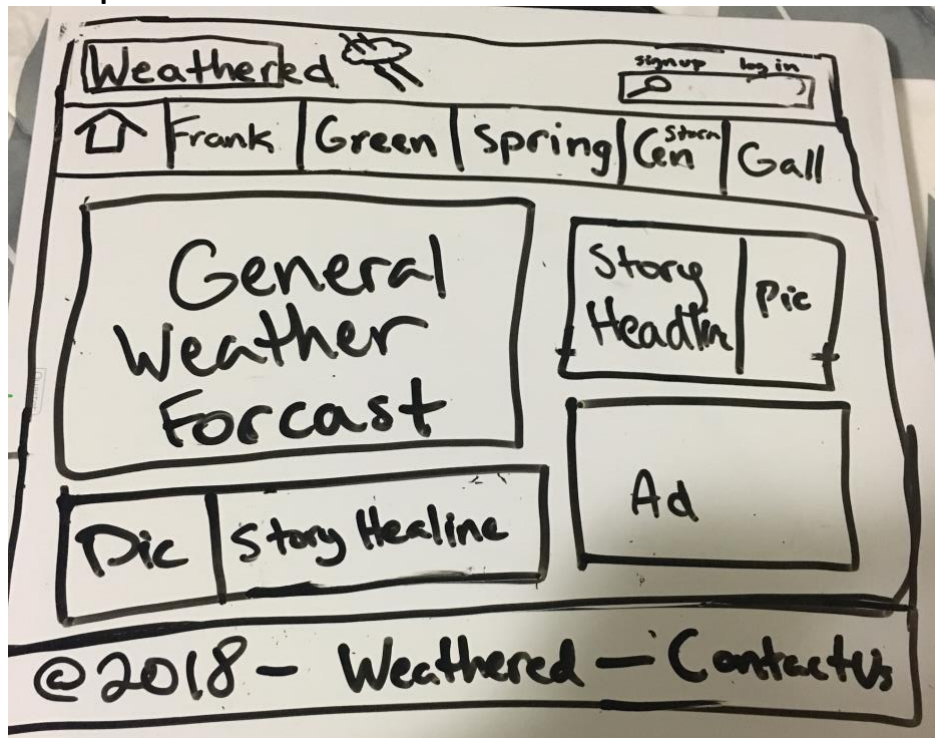 Weathered
signup log in
Frank Green Spring Storm Cen Gall
General
Weather
Forcast
Story
Headlin
Pic
Ad
Pic Story Healine
@2018 - Weathered - Contact Us